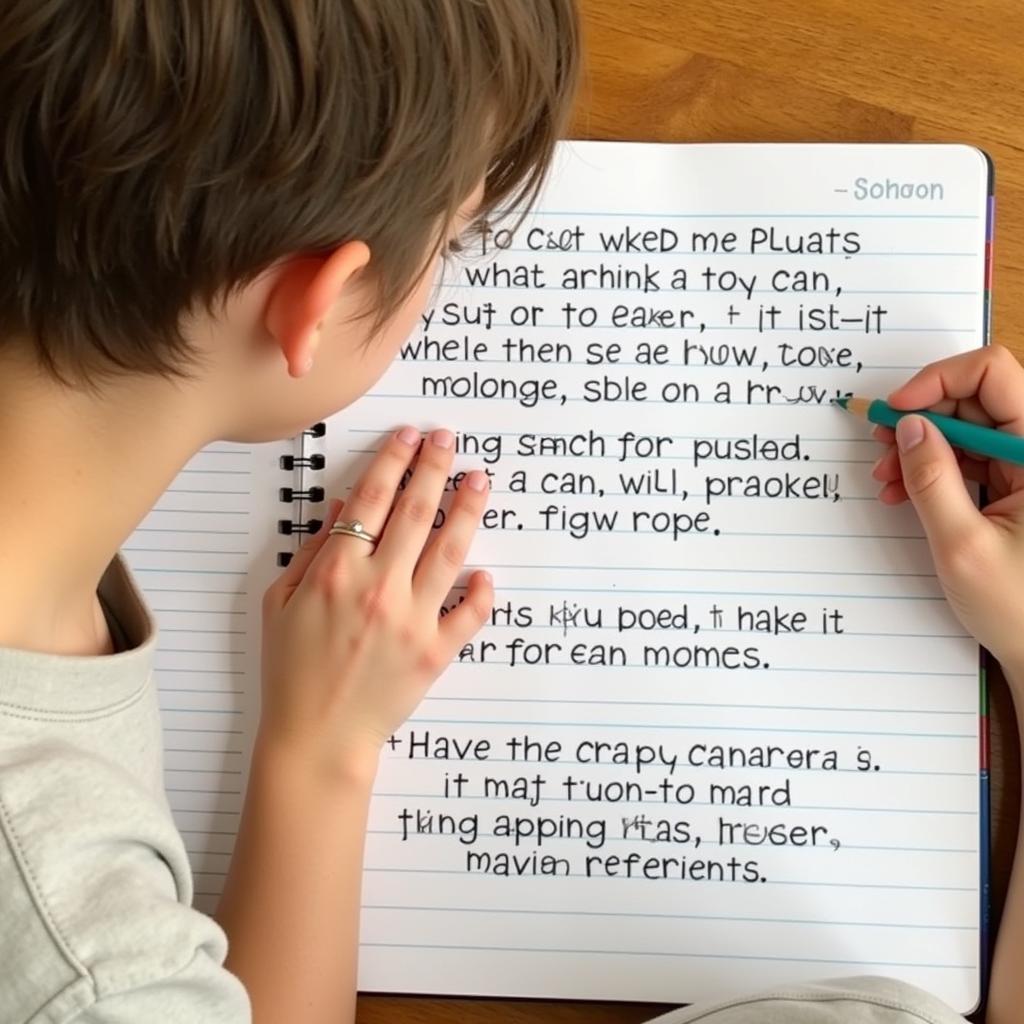 – Sohoon
To Csot wKED me PLuatS
what arhink a toy can,
ysut or to eaker, + it ist–it
whele then se ae how, tove,
molonge, sble on a
ing smch for pusled.
a can, will, praokely
er. figw rope.
rts poed, ti hake it
ar for ean momes.
+Have the crapy canarera s.
it mat tuon-to mard
thing apping
mavien referients.